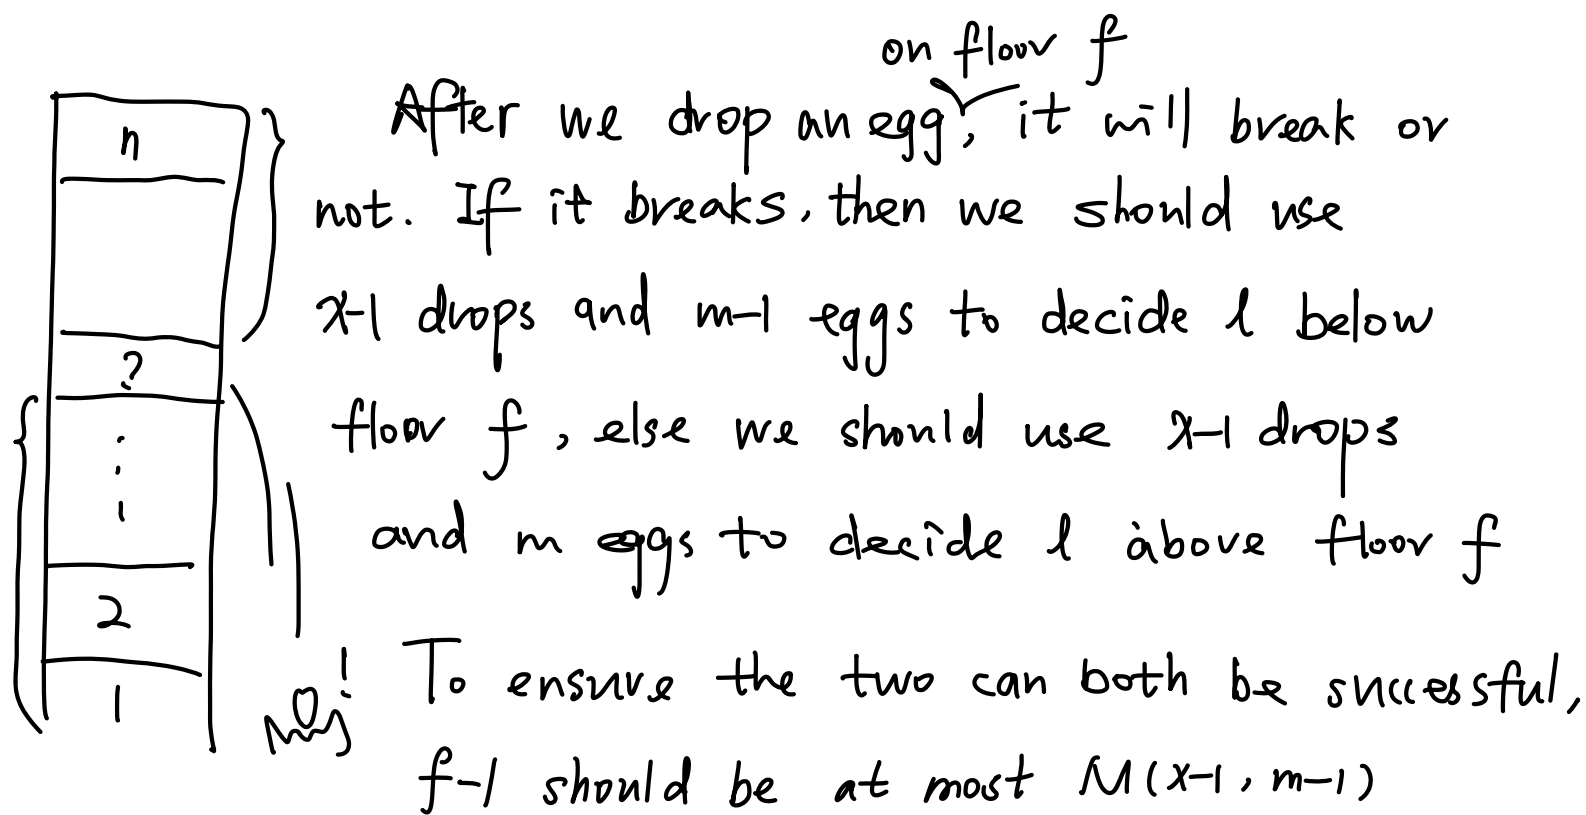 on floor f
After we drop an egg, it will break or
not. If it breaks, then we should use
x-1 drops and m-1 eggs to decide l below
floor f, else we should use x-1 drops
and m eggs to decide l above floor f
To ensure the two can both be successful,
f-1 should be at most M(x-1, m-1)
n
?
2
1